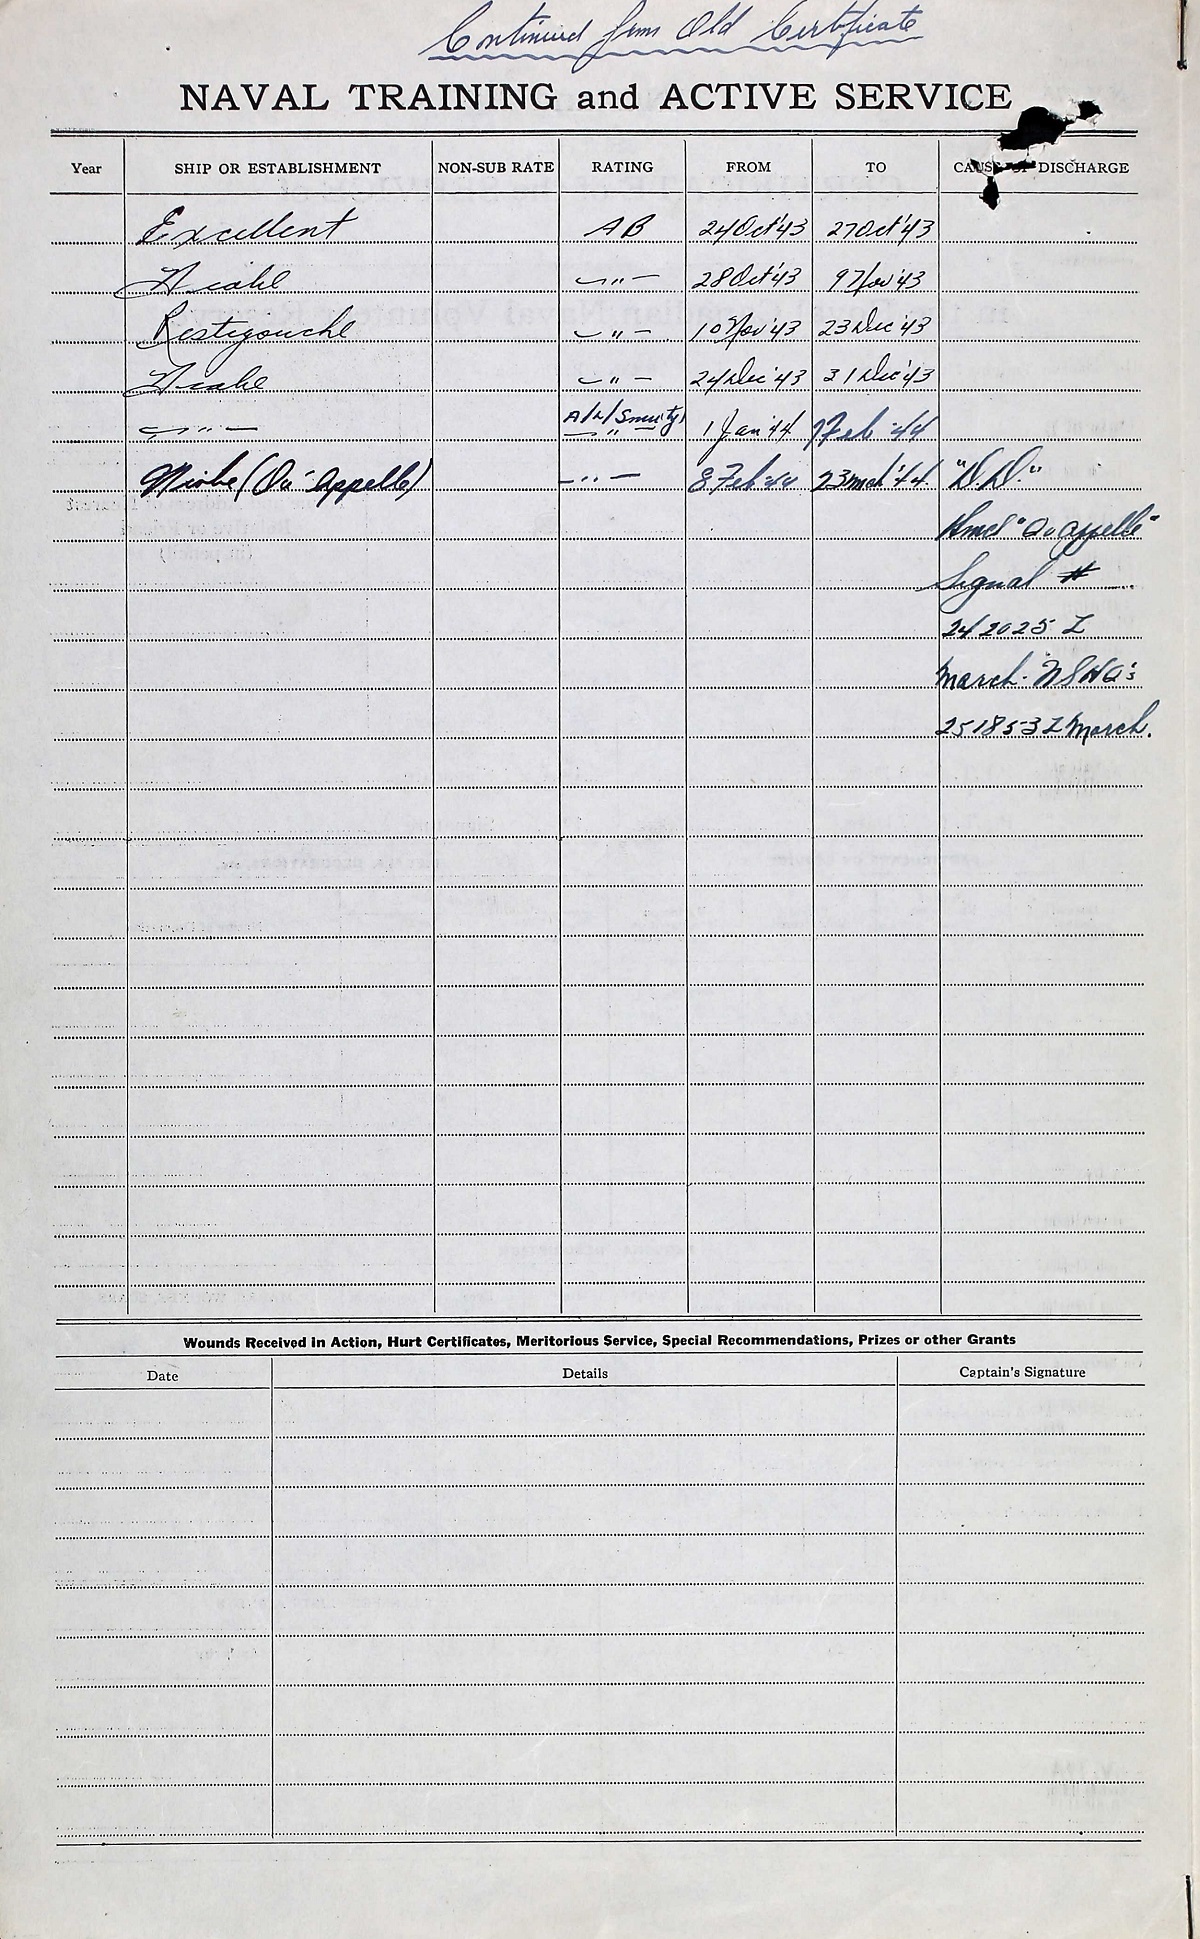 Continued from Old Certificate
NAVAL TRAINING and ACTIVE SERVICE
Year SHIP OR ESTABLISHMENT NON-SUB RATE RATING FROM TO CAUSE OF DISCHARGE
Excellent AB 24 Oct '43 27 Oct '43
Niobe " 28 Oct '43 9 Nov '43
Restigouche " 10 Nov '43 23 Dec '43
Niobe " 24 Dec '43 31 Dec '43
" 1 Jan '44 7 Feb '44
Niobe (Qu'Appelle) " 8 Feb '44 23 Mch '44 "DD"
Hmcs "Qu'Appelle"
Signal #
242025 Z
March. NSHQ's
251853 Z March.
Wounds Received in Action, Hurt Certificates, Meritorious Service, Special Recommendations, Prizes or other Grants
Date Details Captain's Signature